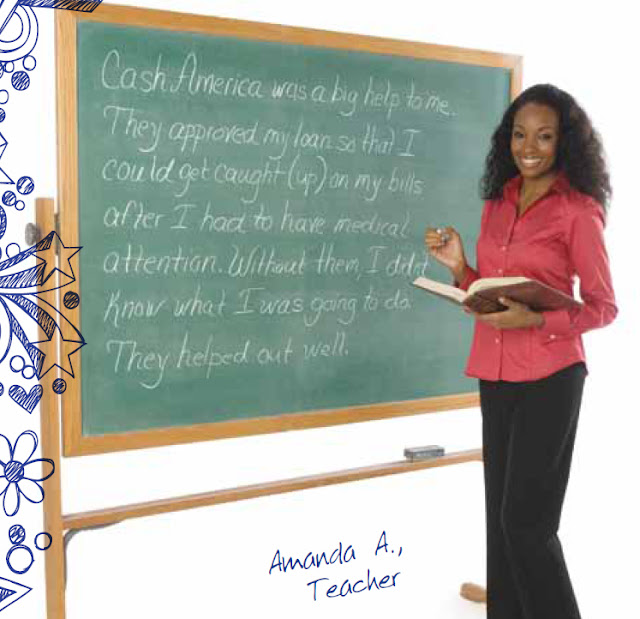 Cash America was a big help to me.
They approved my loan so that I
could get caught (up) on my bills
after I had to have medical
attention. Without them I didn't
know what I was going to do.
They helped out well.
Amanda A.,
Teacher